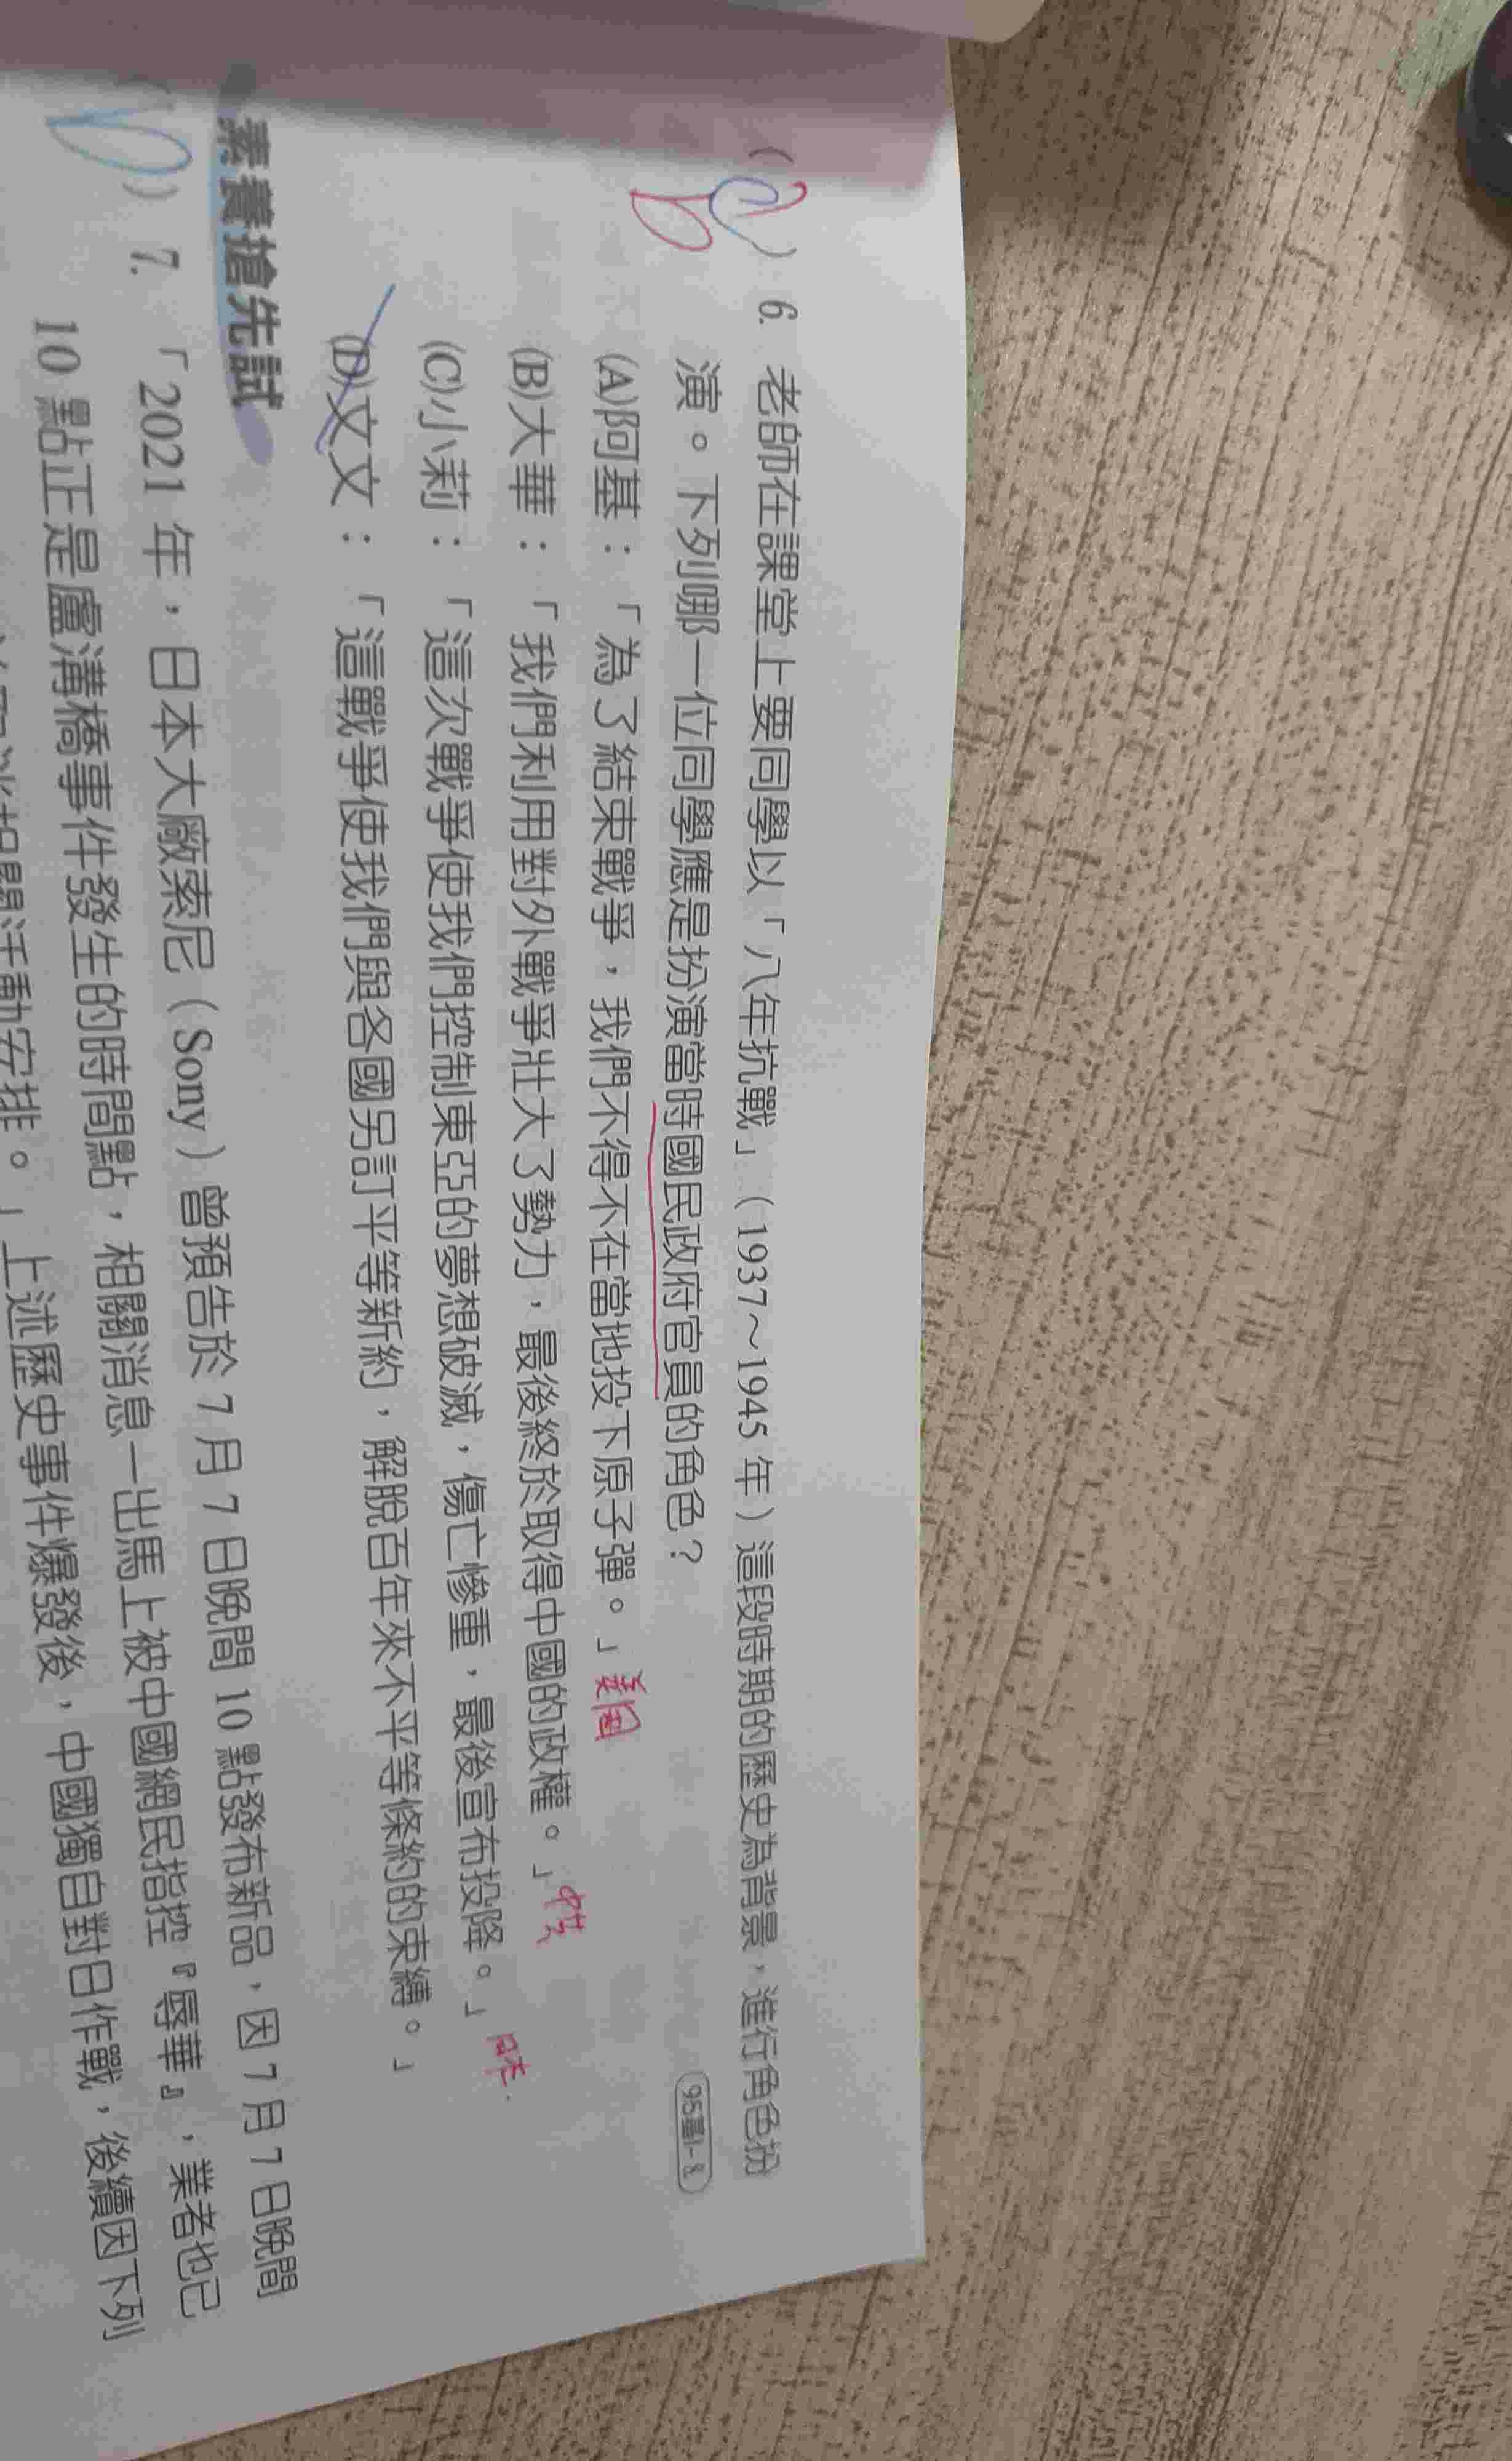 6. 老師在課堂上要同學以「八年抗戰」（1937～1945 年）這段時期的歷史為背景，進行角色扮
演。下列哪一位同學應是扮演當時國民政府官員的角色？
(A)阿基：「為了結束戰爭，我們不得不在當地投下原子彈。」美国
(B)大華：「我們利用對外戰爭壯大了勢力，最後終於取得中國的政權。」中共
(C)小莉：「這次戰爭使我們控制東亞的夢想破滅，傷亡慘重，最後宣布投降。」日本
(D)文文：「這戰爭使我們與各國另訂平等新約，解脫百年來不平等條約的束縛。」
素養搶先試
(D) 7. 「2021 年，日本大廠索尼（Sony）曾預告於 7 月 7 日晚間 10 點發布新品，因 7 月 7 日晚間
10 點正是盧溝橋事件發生的時間點，相關消息一出馬上被中國網民指控『辱華』，業者也已
取消相關活動安排。」上述歷史事件爆發後，中國獨自對日作戰，後續因下列